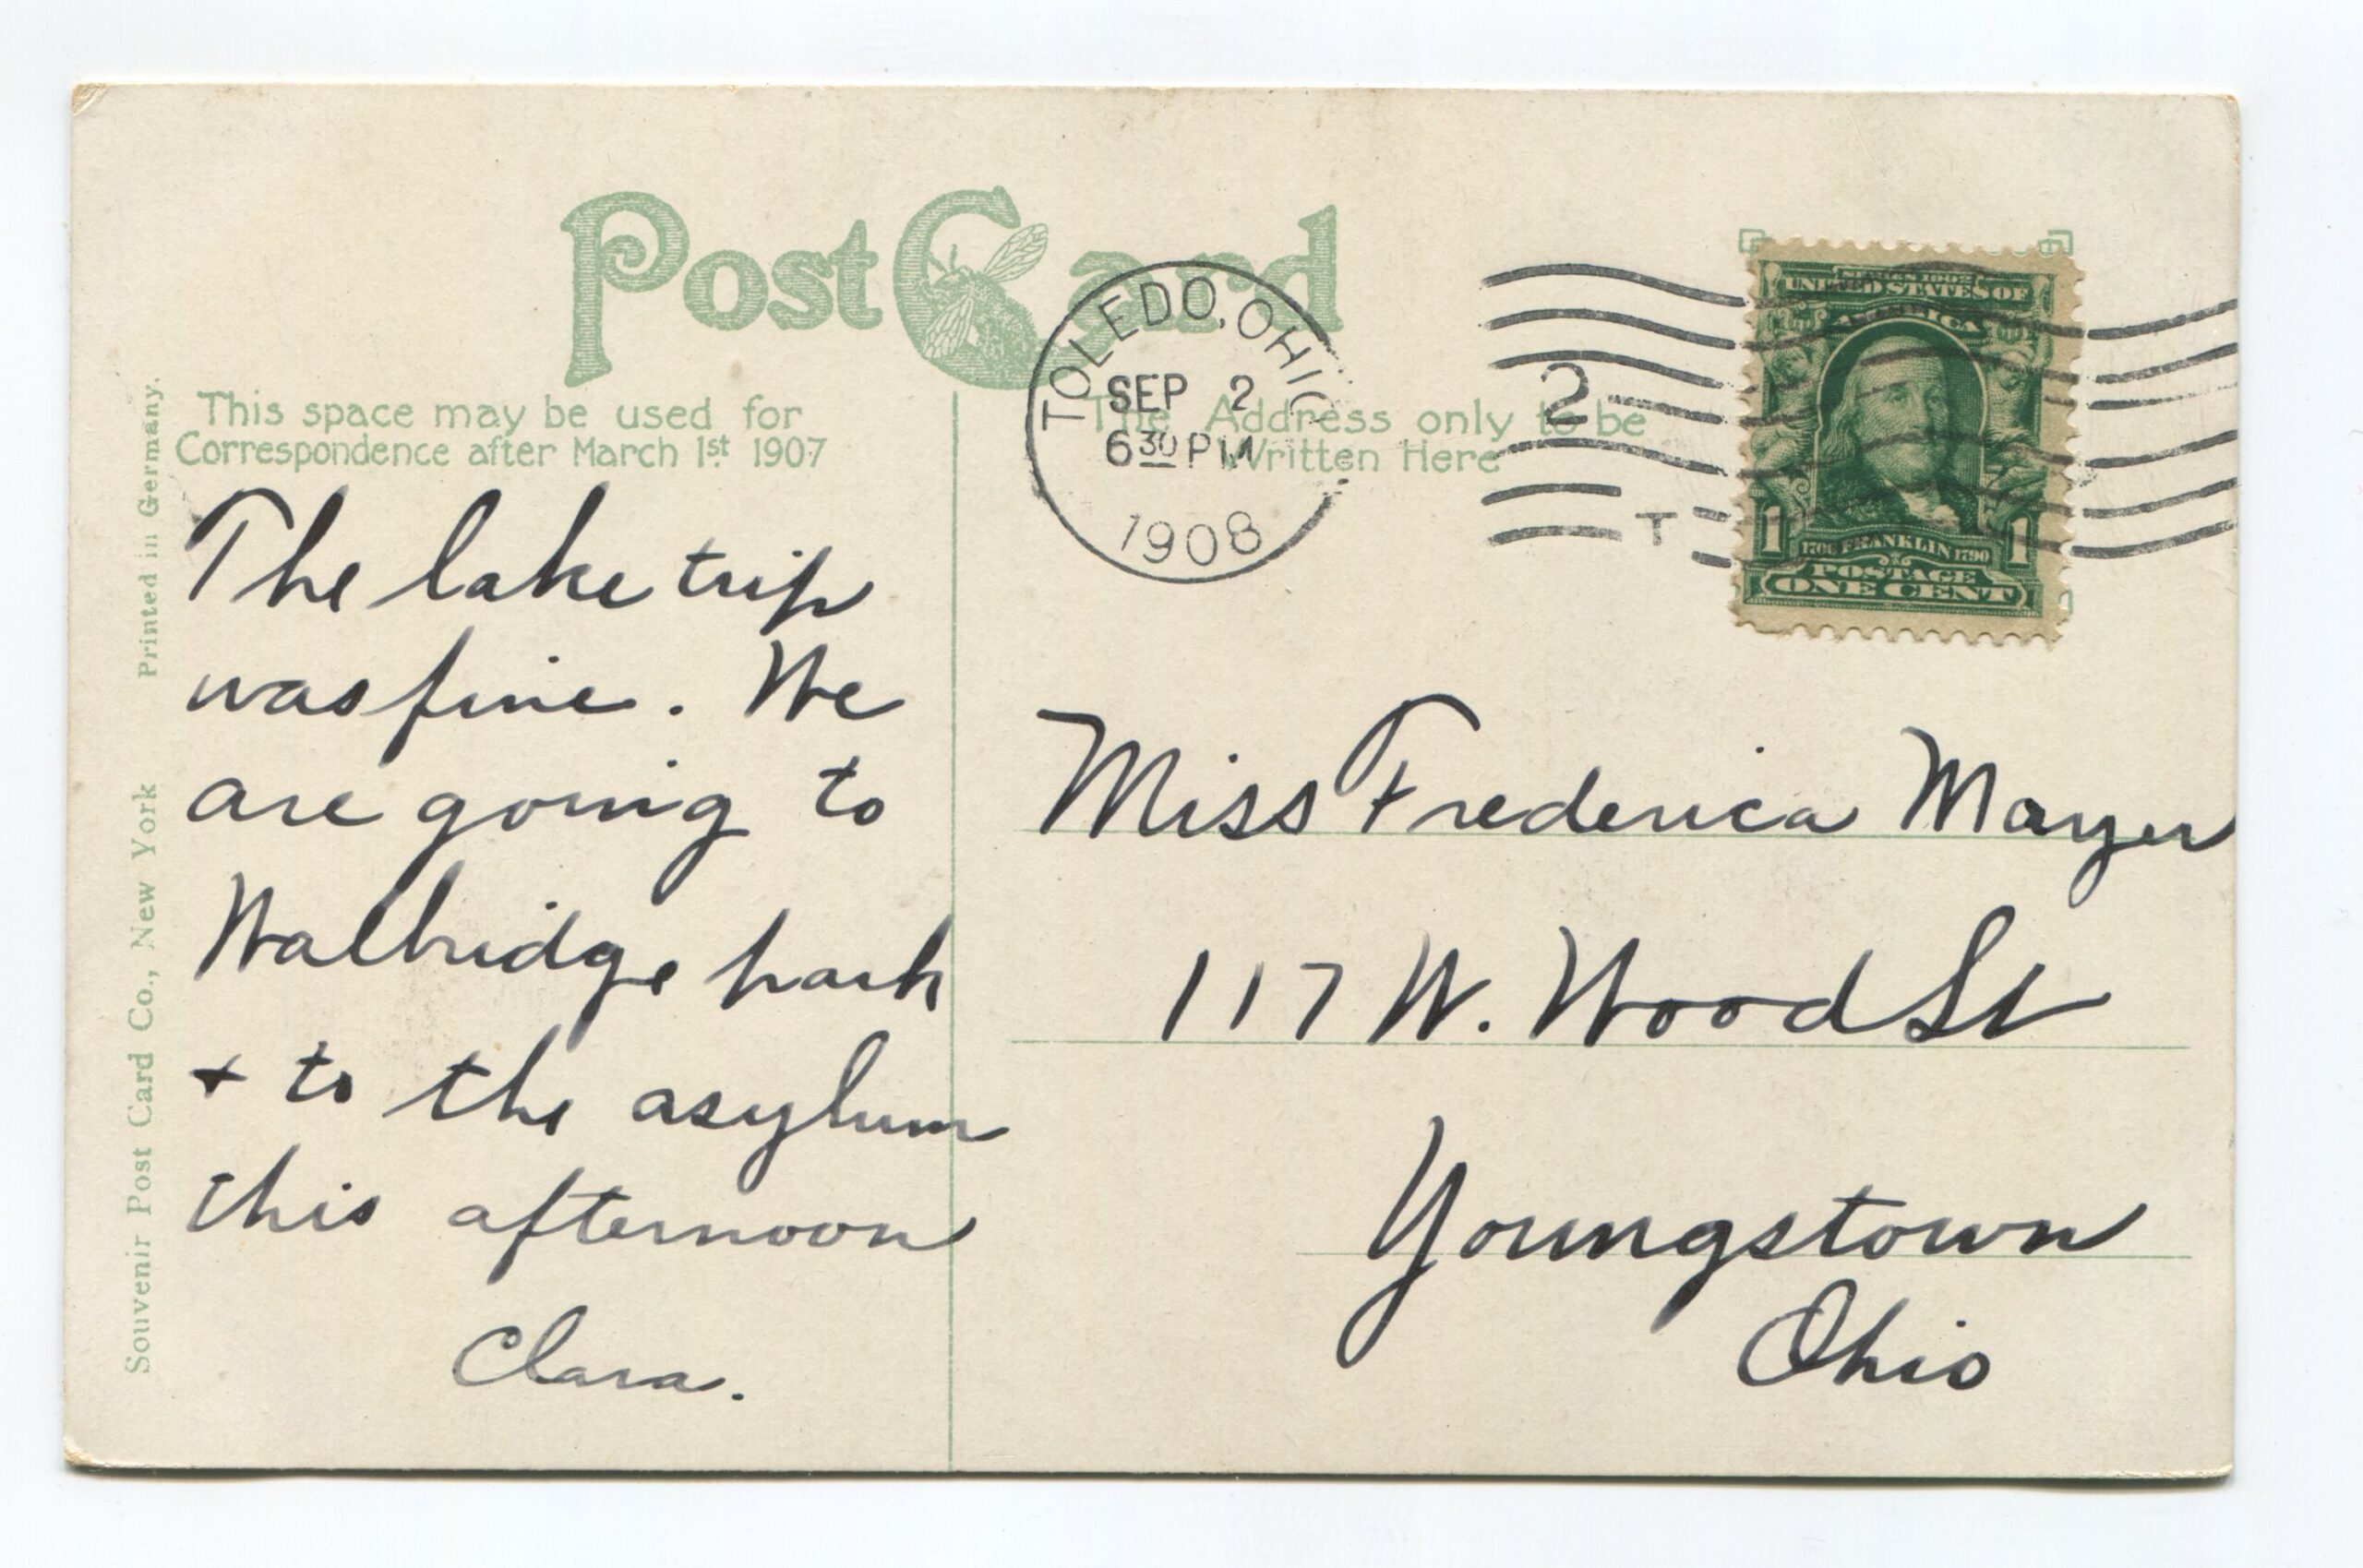 Post Card
This space may be used for
Correspondence after March 1st 1907
The Address only to be
Written Here
TOLEDO, OHIO
SEP 2
6 30 PM
1908
2
T
SERIES 1902
UNITED STATES OF
AMERICA
1 1
1706 FRANKLIN 1790
POSTAGE
ONE CENT
Printed in Germany.
Souvenir Post Card Co., New York
The lake trip
was fine. We
are going to
Walbridge park
+ to the asylum
this afternoon
Clara.
Miss Frederica Mayer
117 W. Wood St
Youngstown
Ohio